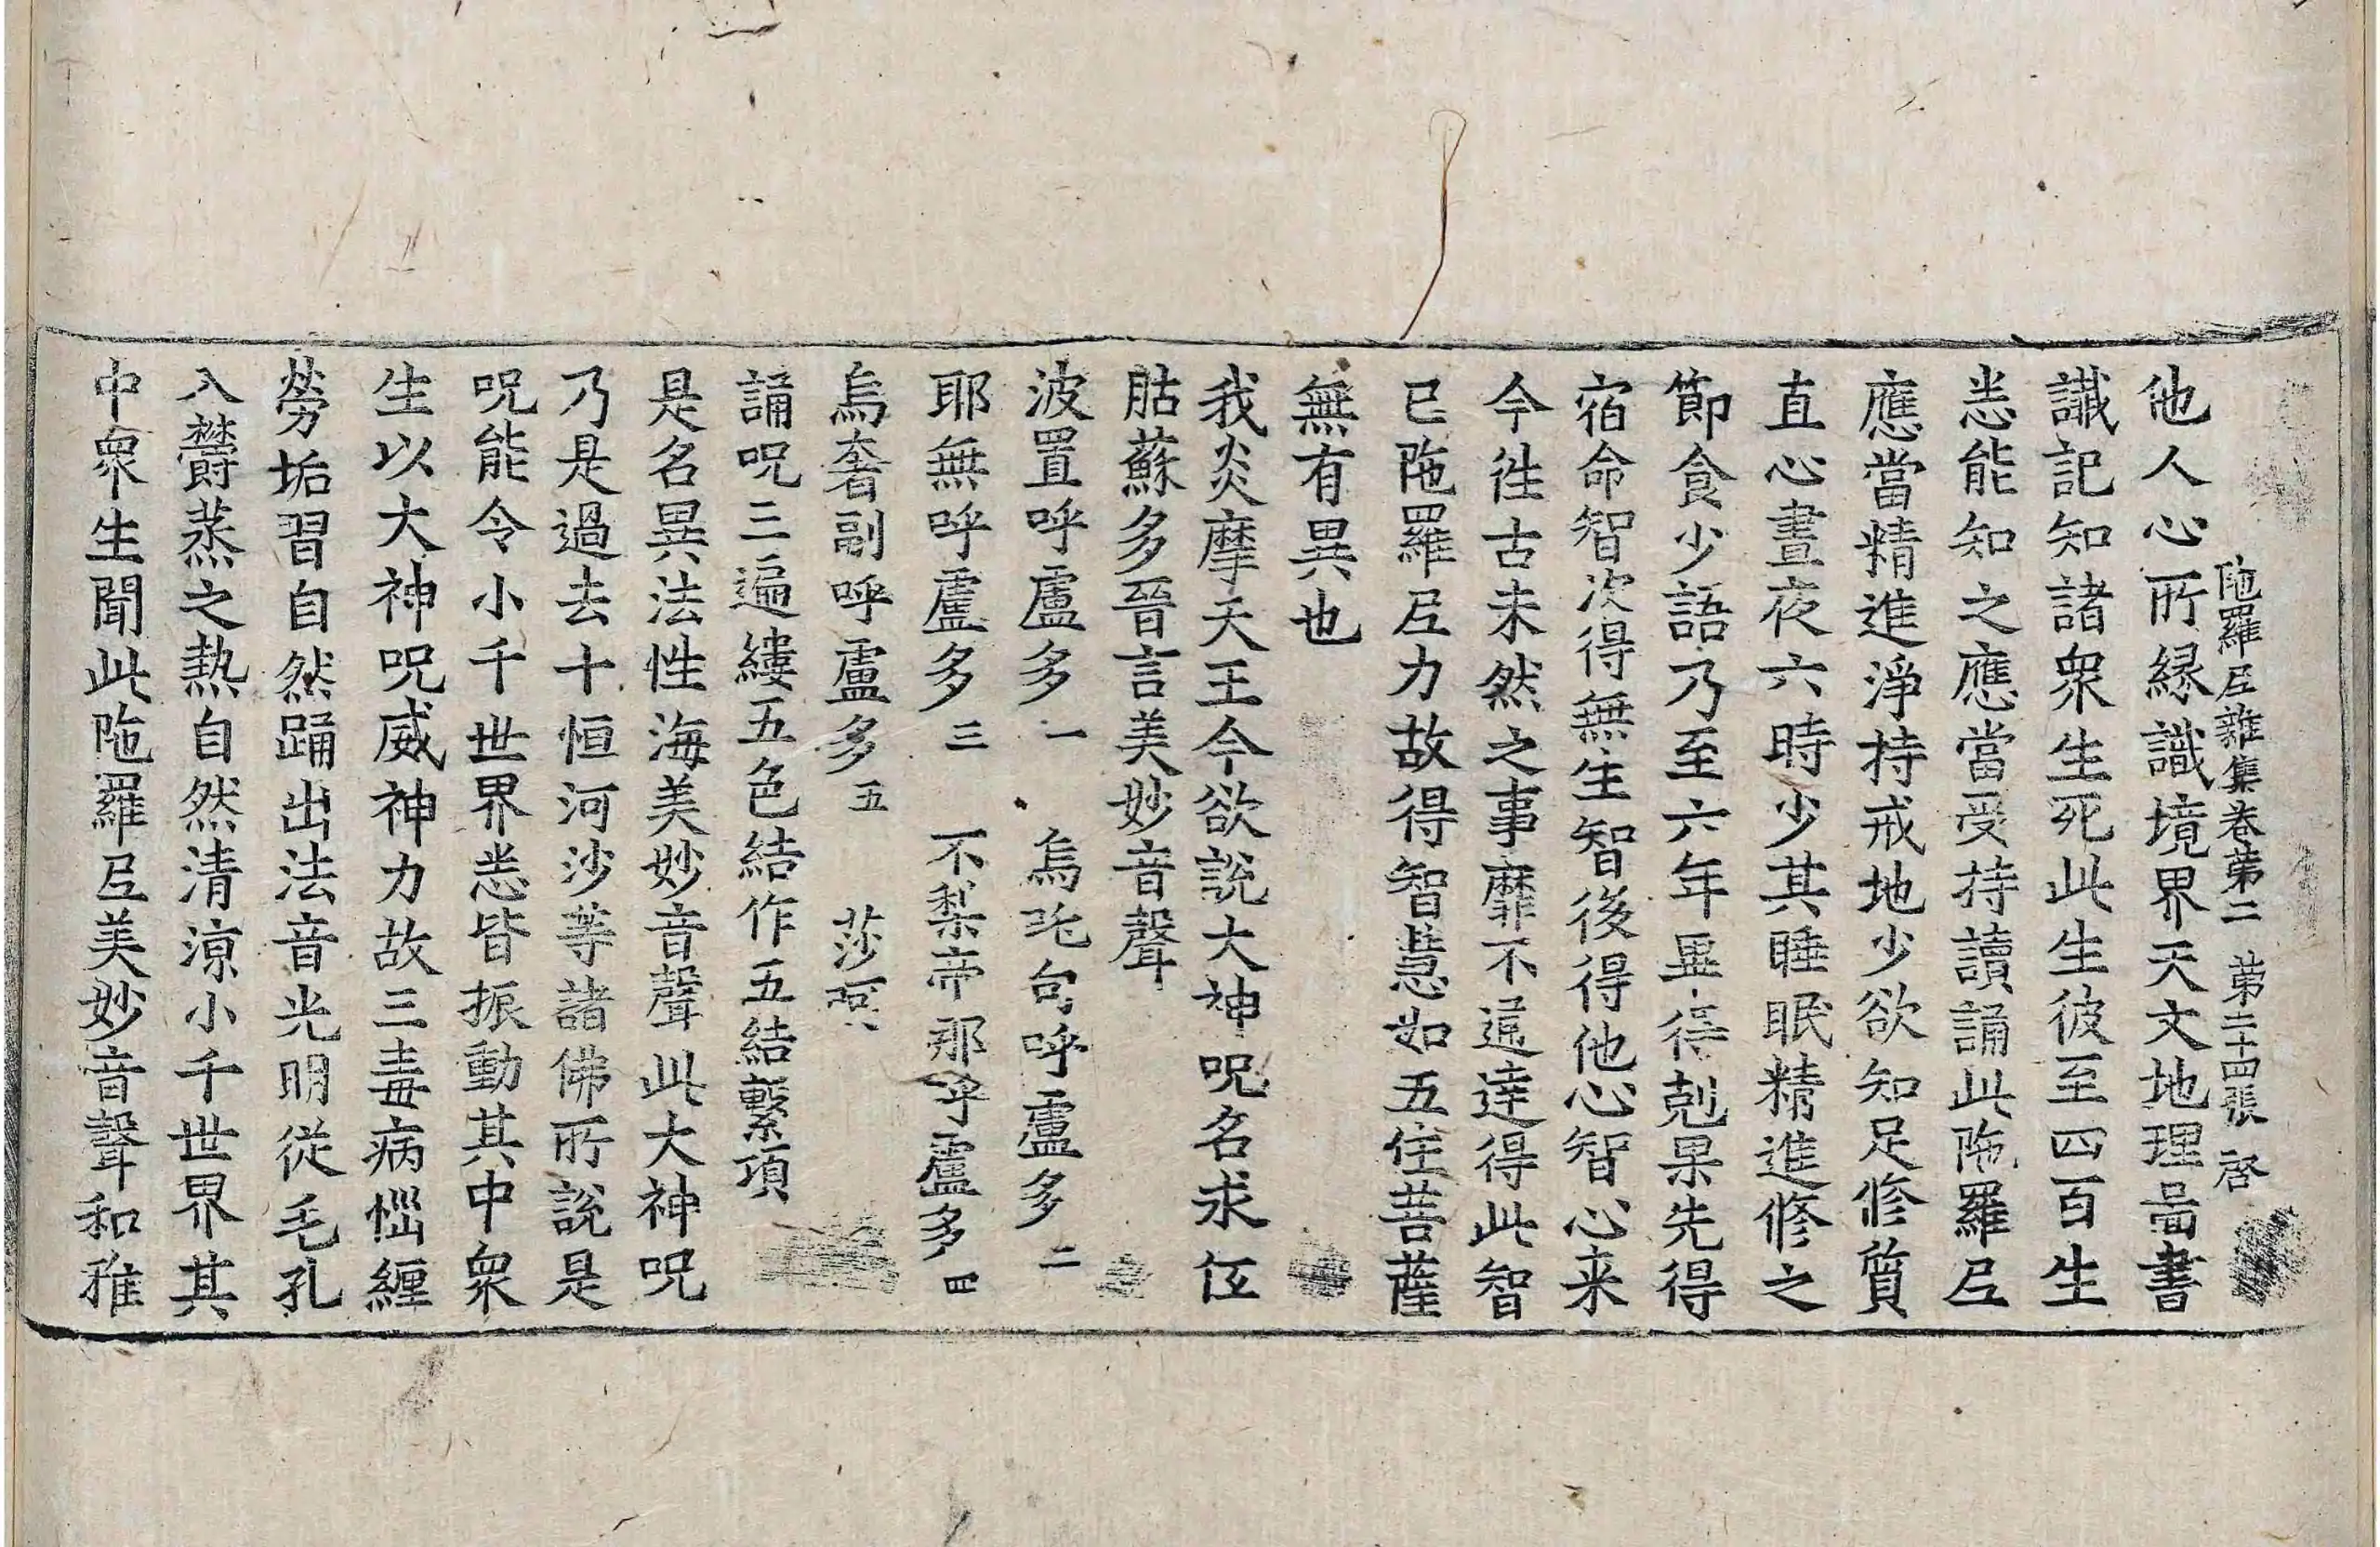 陁羅尼雜集卷苐二　苐二十四張　啓
他人心所緣識境界天文地理啚書
讖記知諸衆生死此生彼至四百生
悉能知之應當受持讀誦此陁羅尼
應當精進淨持戒地少欲知足修質
直心晝夜六時少其睡眠精進修之
節食少語乃至六年畢得剋果先得
宿命智次得無生智後得他心智心来
今徃古未然之事靡不逺達得此智
已陁羅尼力故得智慧如五住菩薩
無有異也
我炎摩天王今欲說大神呪名求仾
胋蘇多晉言美妙音聲
波置呼盧多一　烏吃句呼盧多二
耶無呼盧多三　不梨帝那呼盧多四
烏奢副呼盧多五　莎呵
誦呪三遍縷五色結作五結繫項
是名異法性海美妙音聲此大神呪
乃是過去十恒河沙等諸佛所說是
呪能令小千世界悉皆振動其中衆
生以大神呪威神力故三毒病惱纏
勞垢習自然踊出法音光明從毛孔
入欝蒸之熱自然清涼小千世界其
中衆生聞此陁羅尼美妙音聲和雅